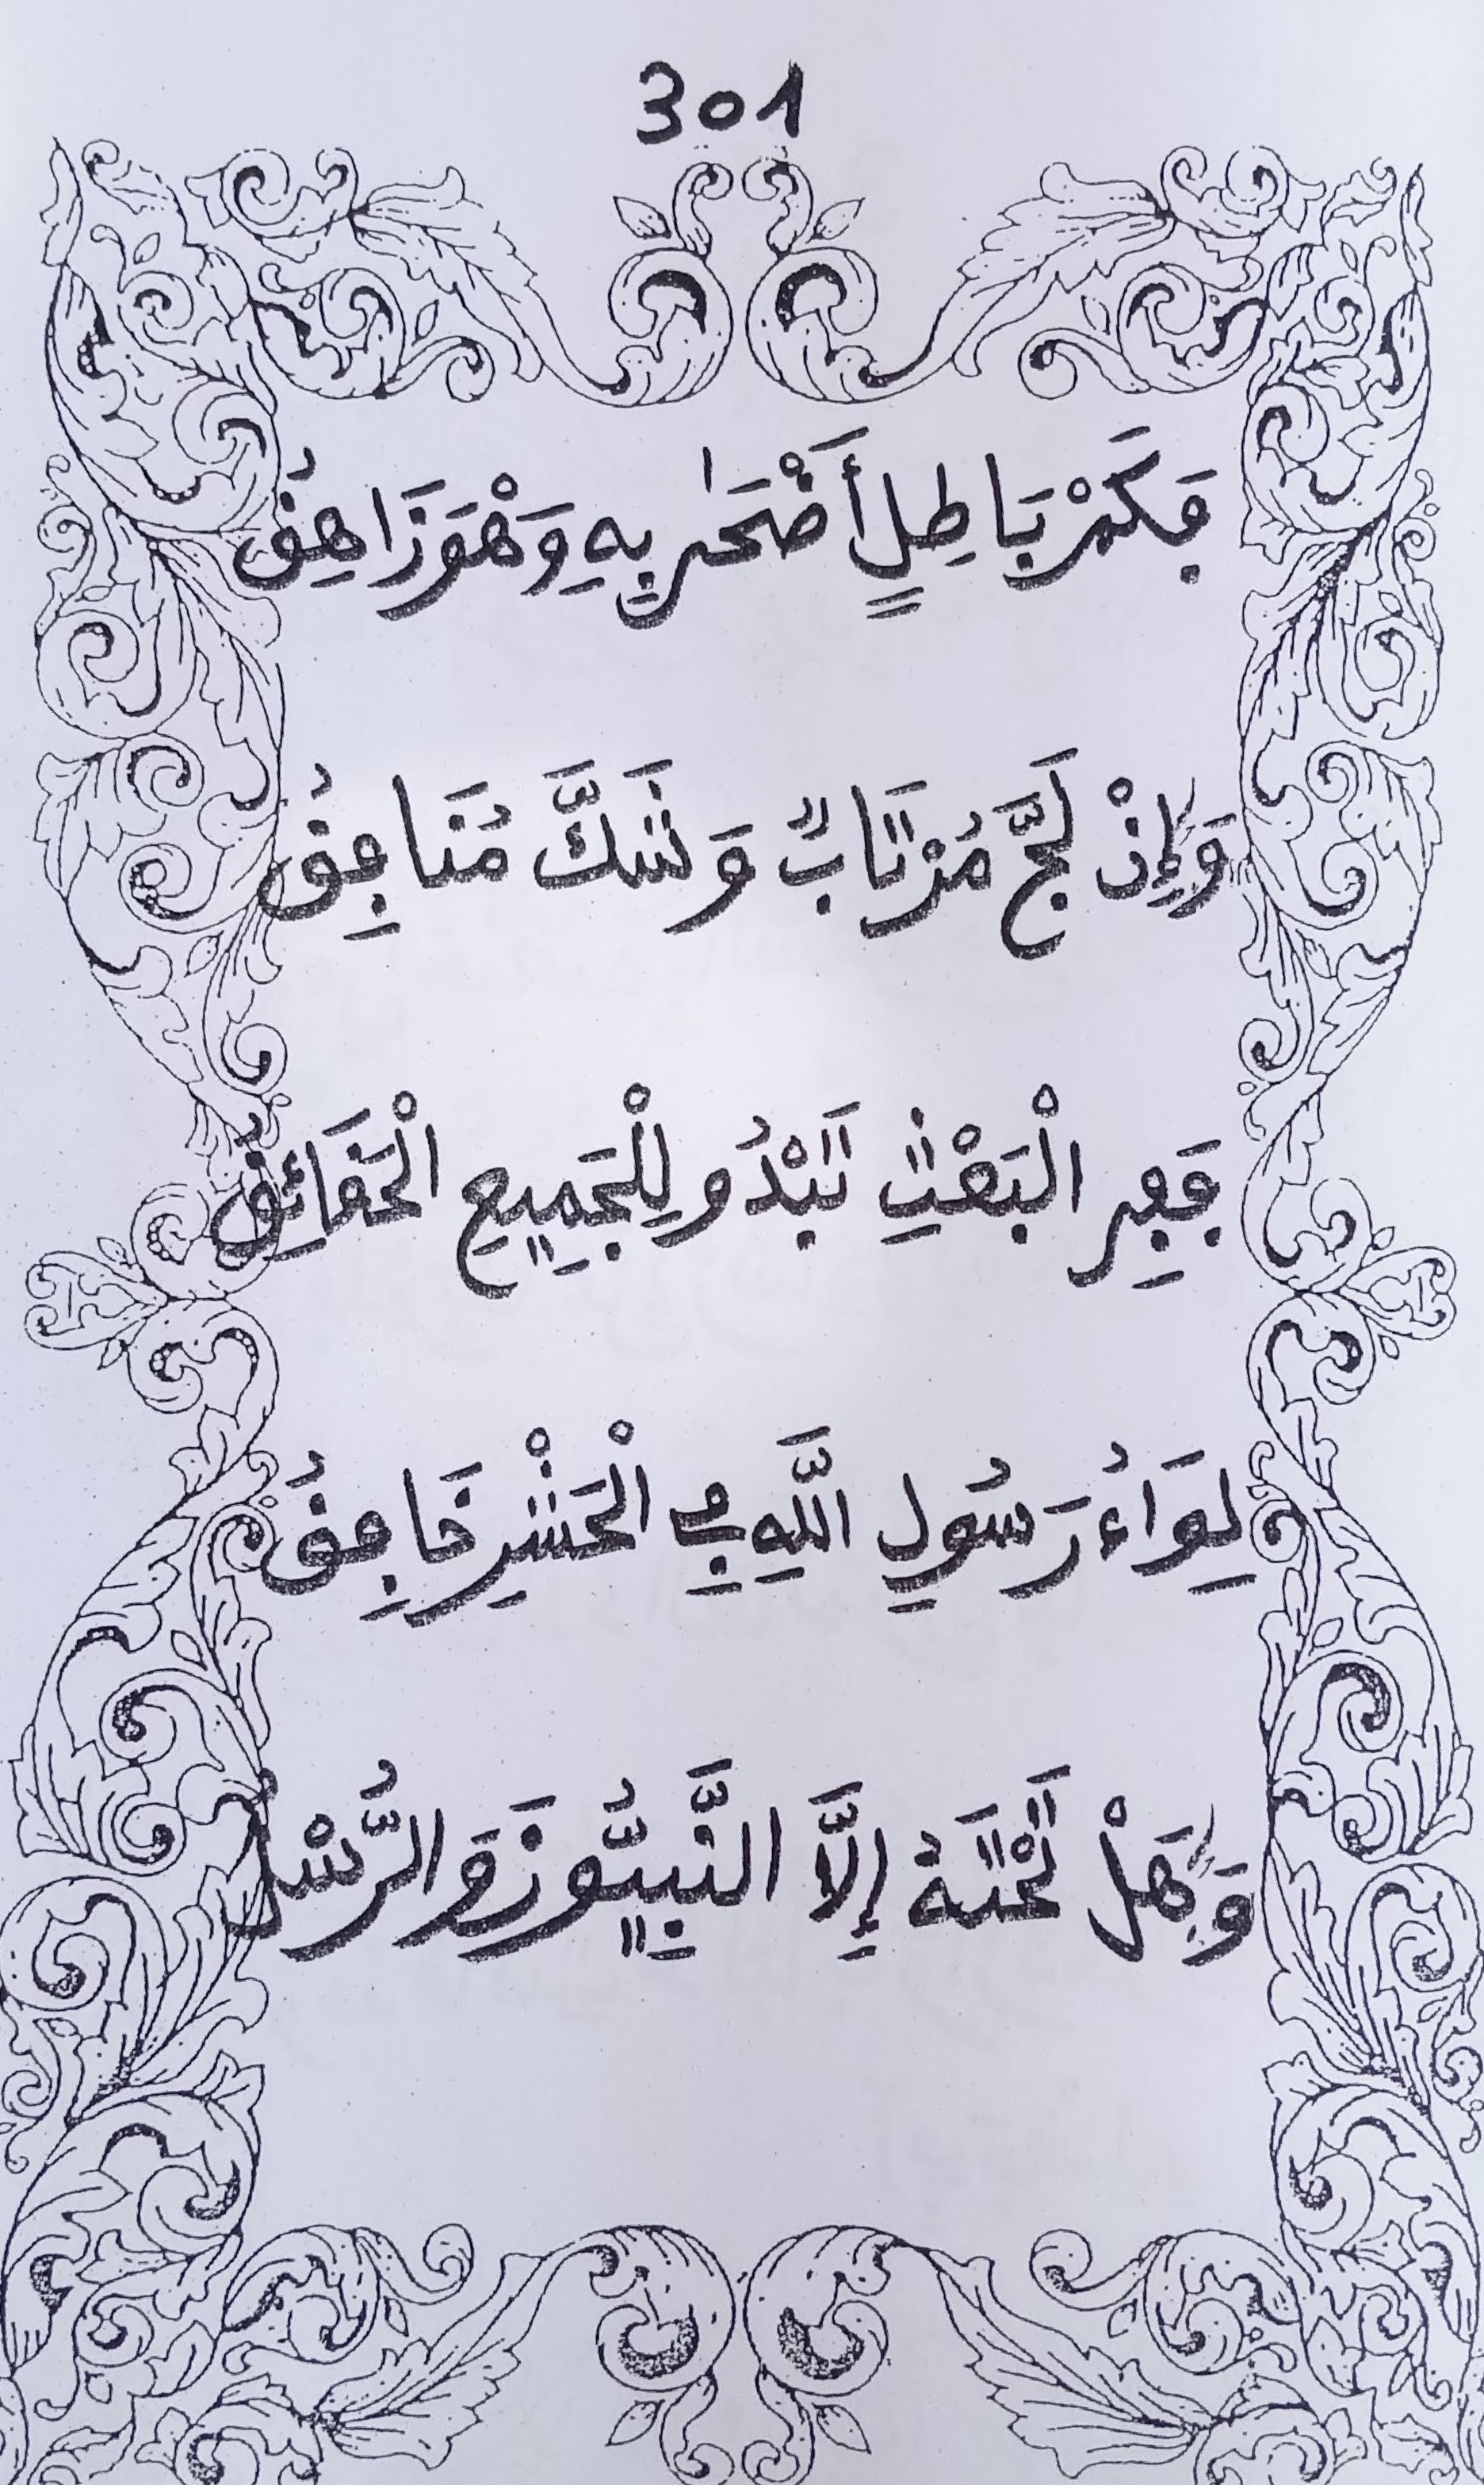 301
فَكَمْ بَاطِلٍ أَضْحَىٰ بِهِ وَهْوَ زَاهِقُ
وَإِنْ لَجَّ مُرْتَابٌ وَشَكَّ مُنَافِقُ
فَفِي الْبَعْثِ تَبْدُو لِلْجَمِيعِ الْحَقَائِقُ
لِوَاءُ رَسُولِ اللَّهِ فِي الْحَشْرِ خَافِقُ
وَهَلْ تَحْتَهُ إِلَّا النَّبِيُّونَ وَالرُّسْلُ